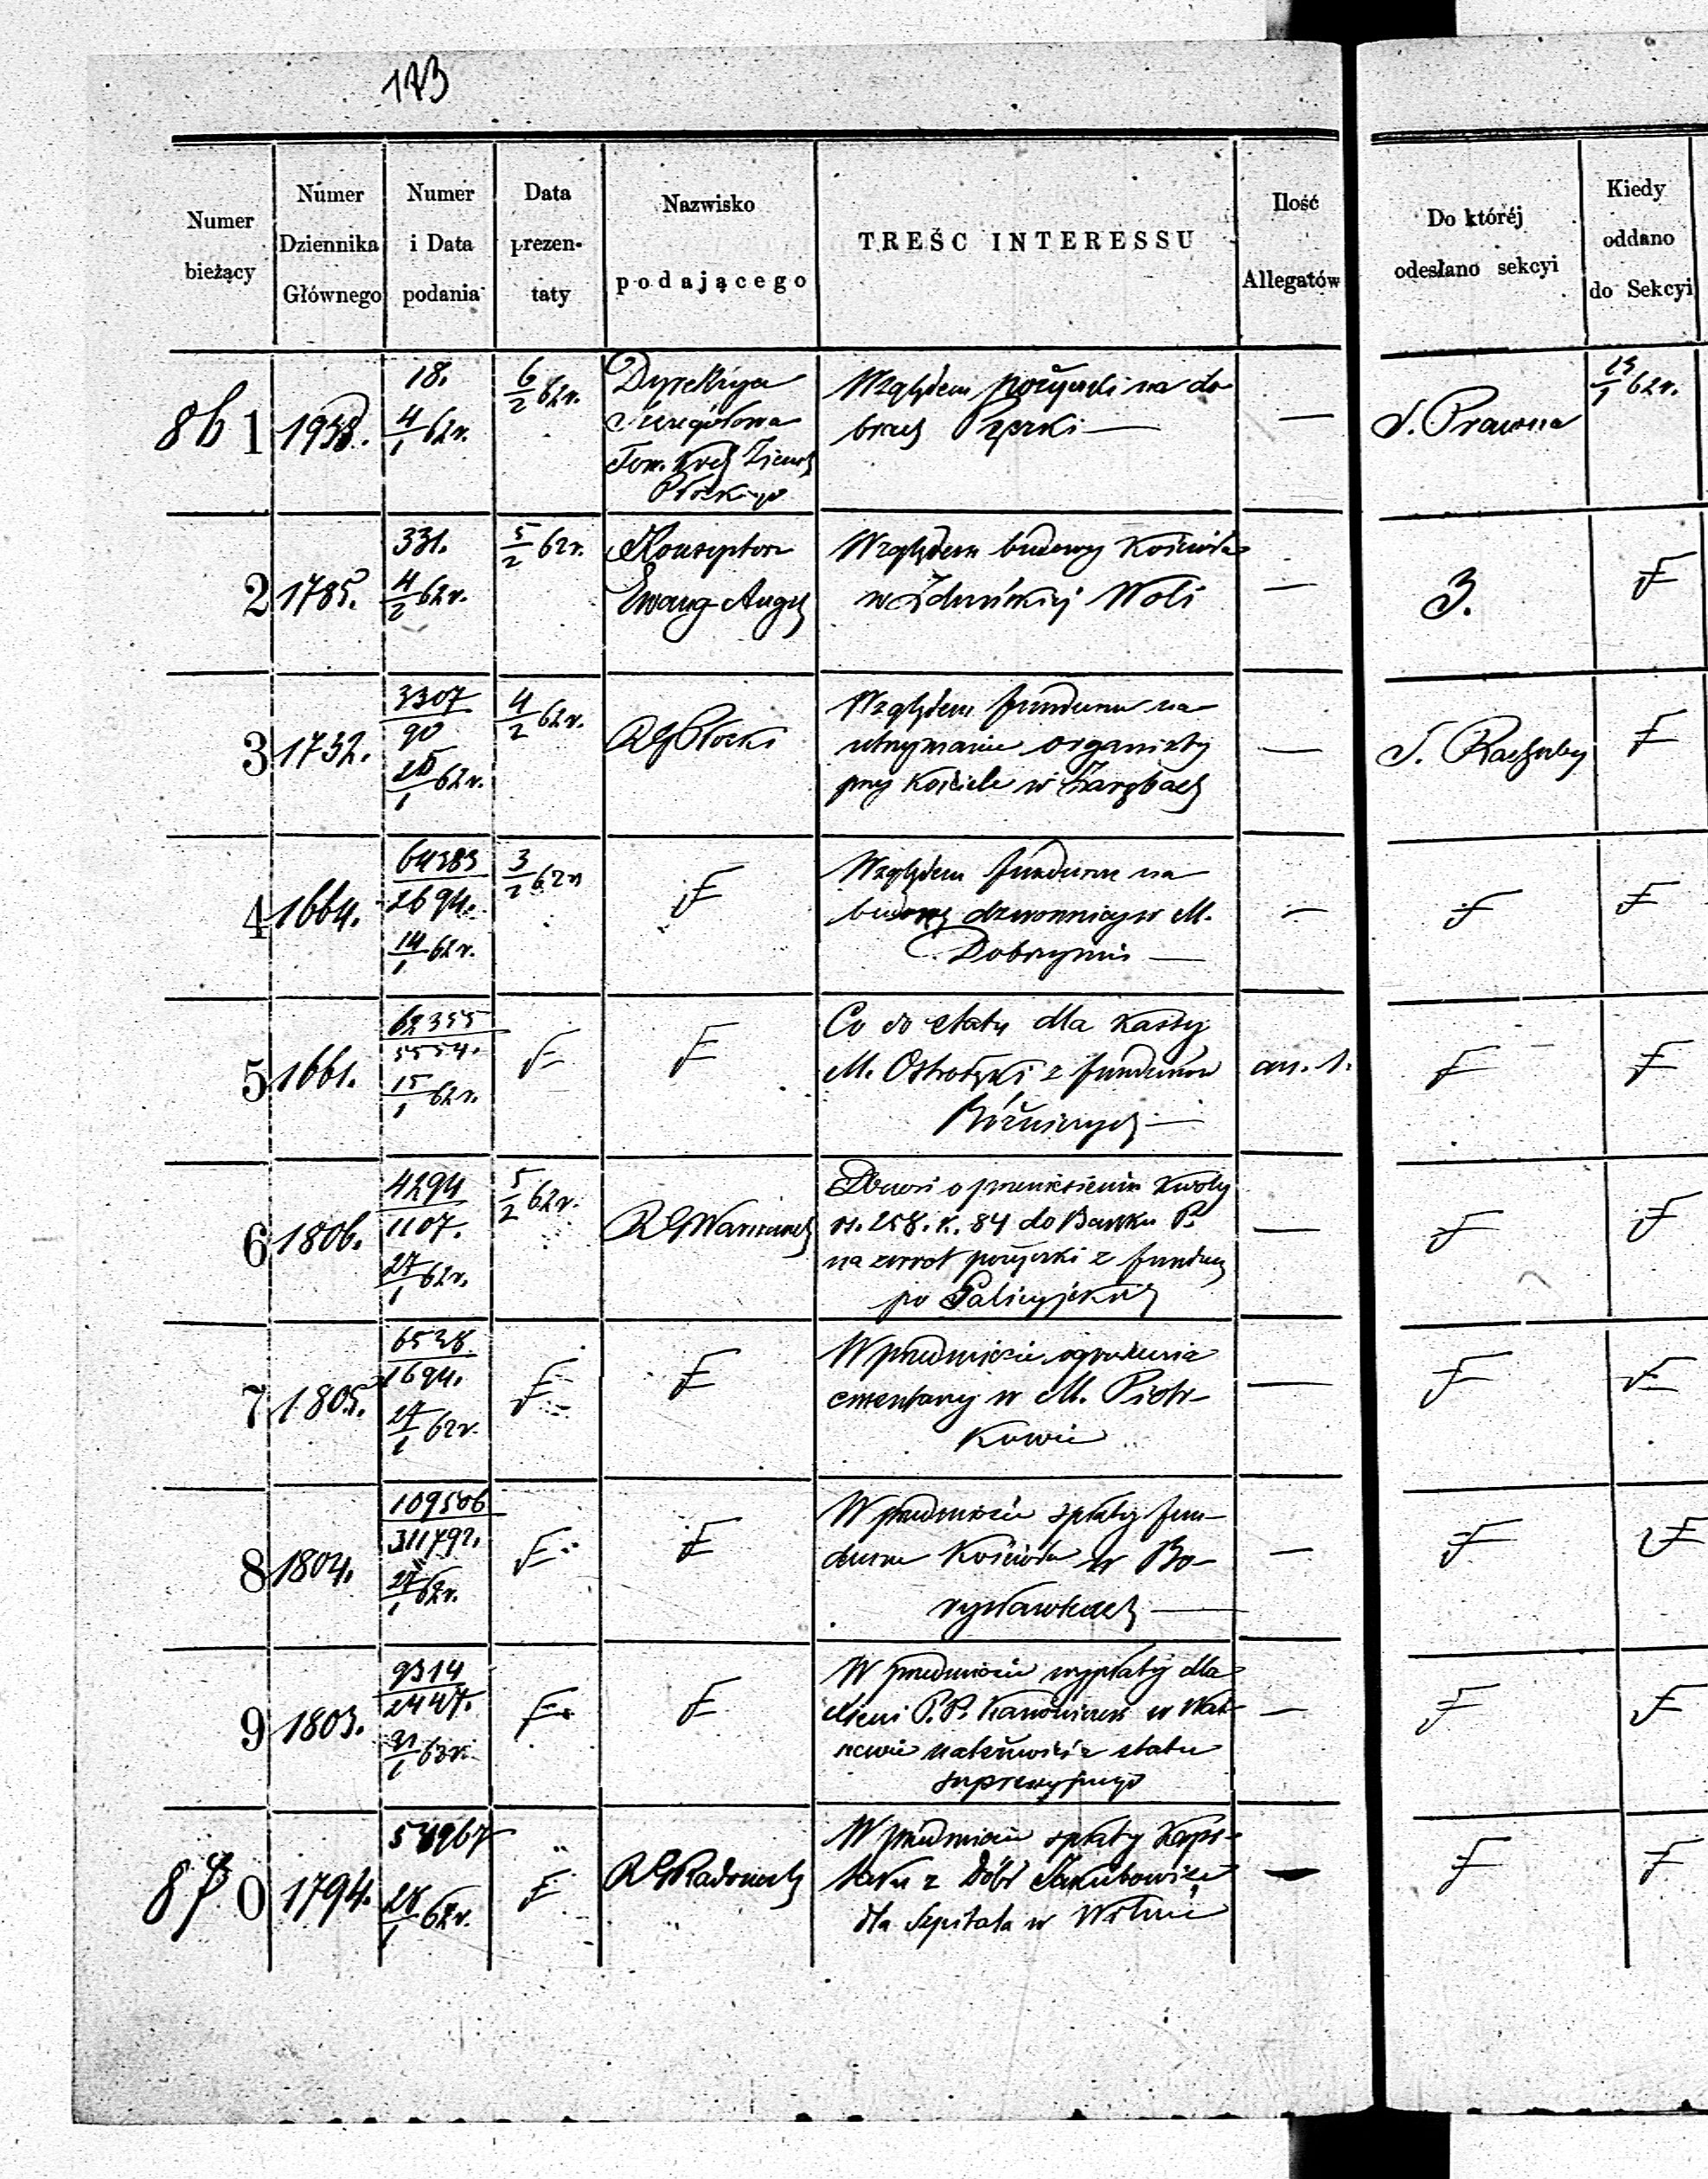 173
Numer
bieżący
Numer
Dziennika
Głównego
Numer
i Data
podania
Data
prezen-
taty
Nazwisko
podającego
TREŚC INTERESSU
Ilość
Allegatów
Do któréj
odesłano sekcyi
Kiedy
oddano
do Sekcyi
861
1938.
18.
4/1 62r.
6/2 62r.
Dyrekcya
Szczegółowa
Tow. Kred Ziems
Płockiego
Względem pożyczki na do
brach —
S. Prawna
15/1 62r.
2
1785.
331.
4/2 62r.
5/2 62r.
Konsystorz
Ewang Augs
Względem budowy Kościoła
w Zduńskiej Woli
—
3.
3
1732.
3307
90
1 62r.
4/2 62r.
RG Płocki
Względem funduszu na
utrzymanie organisty
przy Kościele w Zarębach
—
S. Rachuby
4
1664.
64383
2694.
14/1 62r.
3/2 62r
Względem funduszu na
budowę dzwonnicy w M.
Dobrzyniu —
—
5
1661.
62355
5554.
15/1 62r.
Co do etatu dla Kassy
M. Ostrołęki z funduszów
Bóżniczych —
an. 1.
6
1806.
4294
1107.
27/1 62r.
5/2 62r.
RG Warszaws
Donosi o przeniesieniu kwoty
rs. 258. k. 84 do Banku P.
na zwrot pożyczki z fundusz
po Galicyjskich
—
7
1805.
6538
1694.
27/1 62r.
W przedmiocie ogrodzenia
cmentarzy w M. Piotr-
kowie
—
8
1804.
109506
27/1 62r.
W przedmiocie spłaty fun-
duszu Kościoła w Bo-
rysławicach —
—
9
1803.
9314
2447.
31/1 62r.
W przedmiocie wypłaty dla
P.P. w War-
szawie należności z etatu
supressyjnego
—
870
1794.
28/1 62r.
RG Radomsk
W przedmiocie spłaty kapi-
tału z Dóbr Jakubowice
dla Szpitala w